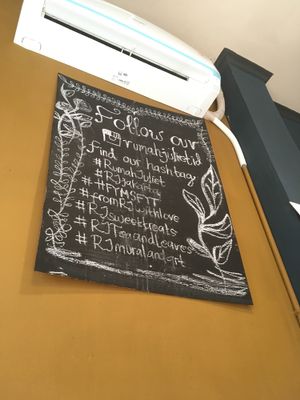 Follow our
rumahjuliet.id
Find our hashtag
#RumahJuliet
#RJjakarta
#FTMSFTT
#fromRJwithlove
#RJsweettreats
#RJTeaandLeaves
#RJmuralandart